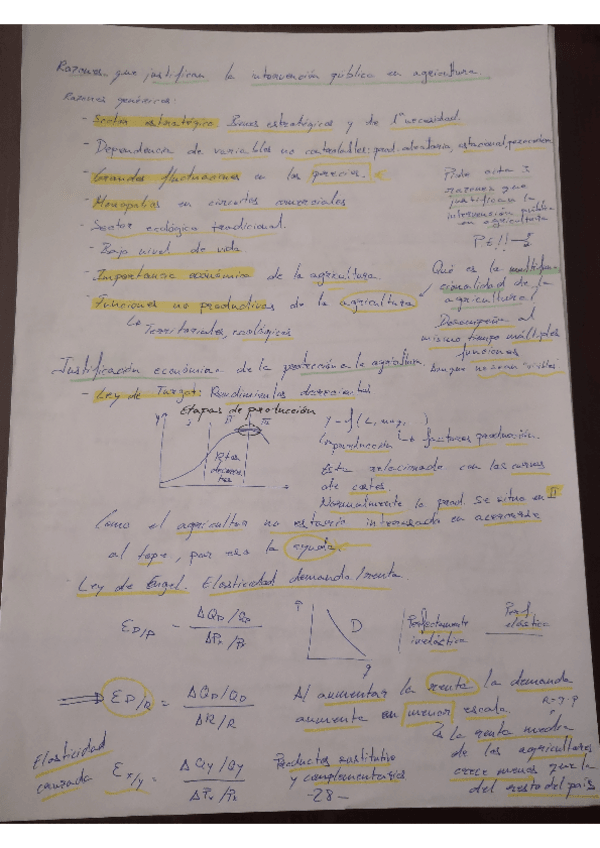 Razones que justifican la intervención pública en agricultura.
Razones genéricas:
- Sector estratégico Bienes estratégicos y de 1ª necesidad.
- Dependencia de variables no controlables: prod. aleatoria, estacional, perecedera
- Grandes fluctuaciones en los precios.
- Monopolios en circuitos comerciales
- Sector ecológico tradicional.
- Bajo nivel de vida.
- Importancia económica de la agricultura.
- Funciones no productivas de la agricultura
↳ Territoriales, ecológicas
Pide esta 3
razones que
justifican la
intervención pública
en agricultura
PE!!
Qué es la multifun
cionalidad de la
agricultura?
Desempeña al
mismo tiempo múltiples
funciones
aunque no sean visibles.
Justificación económica de la protección a la agricultura.
- Ley de Turgot: Rendimientos decrecientes
Etapas de producción
y
I II III
Rtos
decrecien
tes
y = f(
factores producción.
Esta relacionada con las curvas
de costes.
Normalmente la prod. se situa en II
Como el agricultor no estaría interesado en
al tope, por eso la ayuda.
- Ley de Engel. Elasticidad demanda/renta.
ε D/P = ΔQD/QD / ΔPP/PP
P
D
q
Perfectamente
inelástica
Perf
elástica
⇒ ε D/R = ΔQD/QD / ΔR/R
Al aumentar la renta la demanda
aumenta en menor escala.
R = p · q
↳ La renta media
de los agricultores
crece menos que la
del resto del país
Elasticidad
cruzada
ε x/y = ΔQy/Qy / ΔPx/Px
Productos sustitutivo
y complementarios
-28-